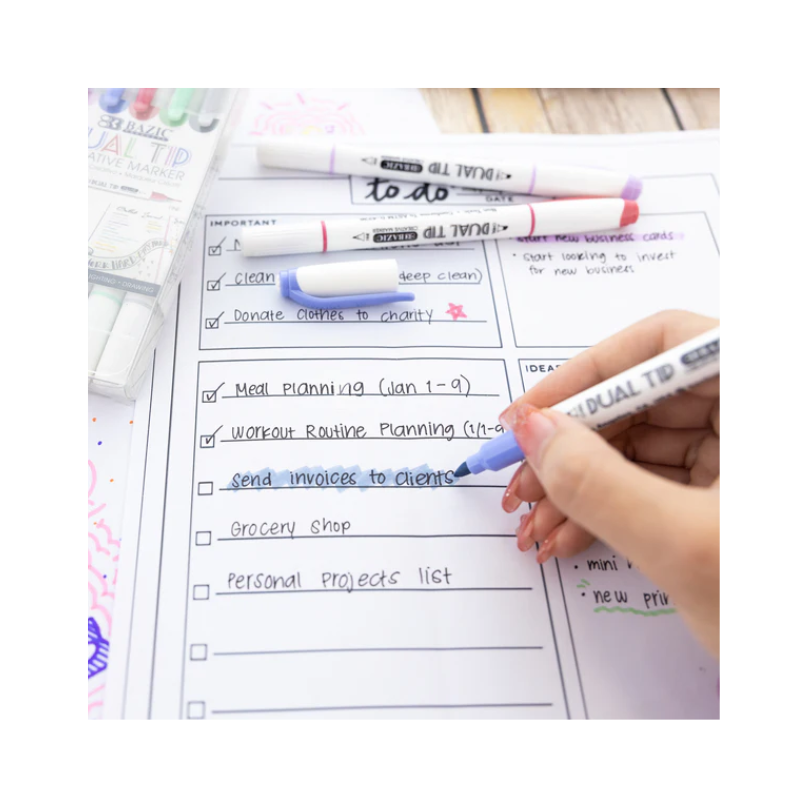 BAZIC
DUAL TIP
MARKER
DUAL TIP
BAZIC
to do
DATE
DUAL TIP
BAZIC
CREATIVE MARKER
IMPORTANT
Clean deep clean)
Donate Clothes to charity
start new business cards
• start looking to invest
for new business
Meal Planning (Jan 1-9)
Workout Routine Planning (1/1-9
Send invoices to clients
Grocery Shop
Personal Projects list
DUAL TIP
• mini
• new